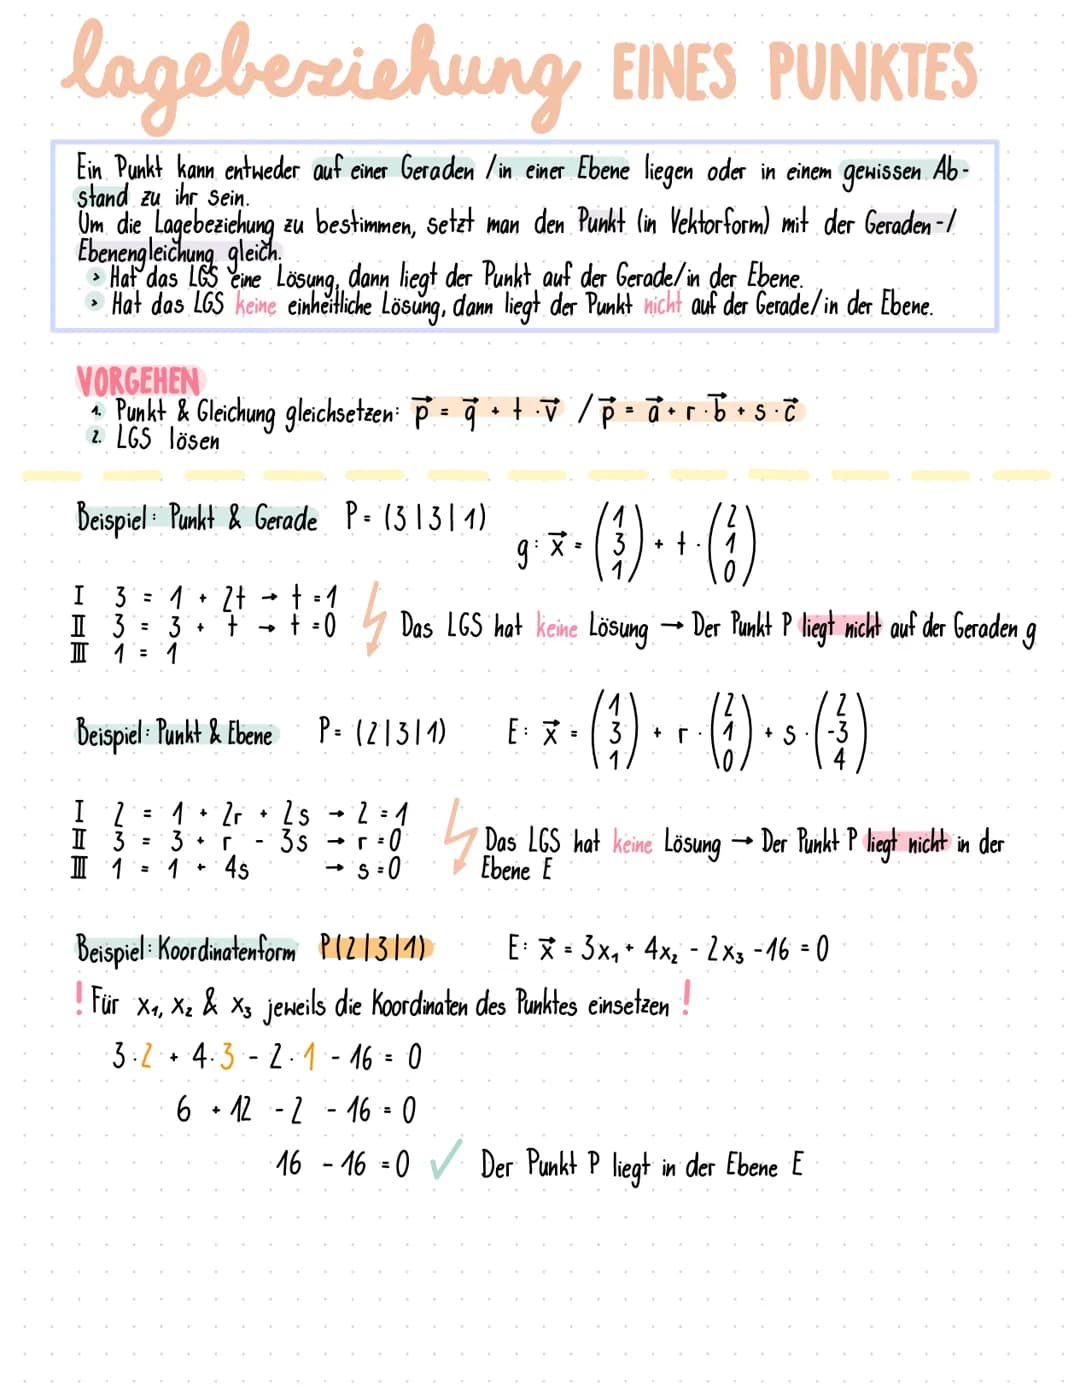 lagebeziehung EINES PUNKTES
Ein Punkt kann entweder auf einer Geraden / in einer Ebene liegen oder in einem gewissen Ab-
stand zu ihr sein.
Um die Lagebeziehung zu bestimmen, setzt man den Punkt (in Vektorform) mit der Geraden-/
Ebenengleichung gleich.
> Hat das LGS eine Lösung, dann liegt der Punkt auf der Gerade/in der Ebene.
> Hat das LGS keine einheitliche Lösung, dann liegt der Punkt nicht auf der Gerade/in der Ebene.
VORGEHEN
1. Punkt & Gleichung gleichsetzen: p⃗ = q⃗ + t · v⃗ / p⃗ = a⃗ + r · b⃗ + s · c⃗
2. LGS lösen
Beispiel: Punkt & Gerade P = (3|3|1) g: x⃗ = (1 3 1) + t · (2 1 0)
I 3 = 1 + 2t → t = 1
II 3 = 3 + t → t = 0 Das LGS hat keine Lösung → Der Punkt P liegt nicht auf der Geraden g
III 1 = 1
Beispiel: Punkt & Ebene P = (2|3|1) E: x⃗ = (1 3 1) + r · (2 1 0) + s · (2 -3 4)
I 2 = 1 + 2r + 2s → 2 = 1
II 3 = 3 + r - 3s → r = 0 Das LGS hat keine Lösung → Der Punkt P liegt nicht in der
III 1 = 1 + 4s → s = 0 Ebene E
Beispiel: Koordinatenform P(2|3|1) E: x⃗ = 3x₁ + 4x₂ - 2x₃ - 16 = 0
! Für x₁, x₂ & x₃ jeweils die Koordinaten des Punktes einsetzen !
3·2 + 4·3 - 2·1 - 16 = 0
6 + 12 - 2 - 16 = 0
16 - 16 = 0 ✓ Der Punkt P liegt in der Ebene E